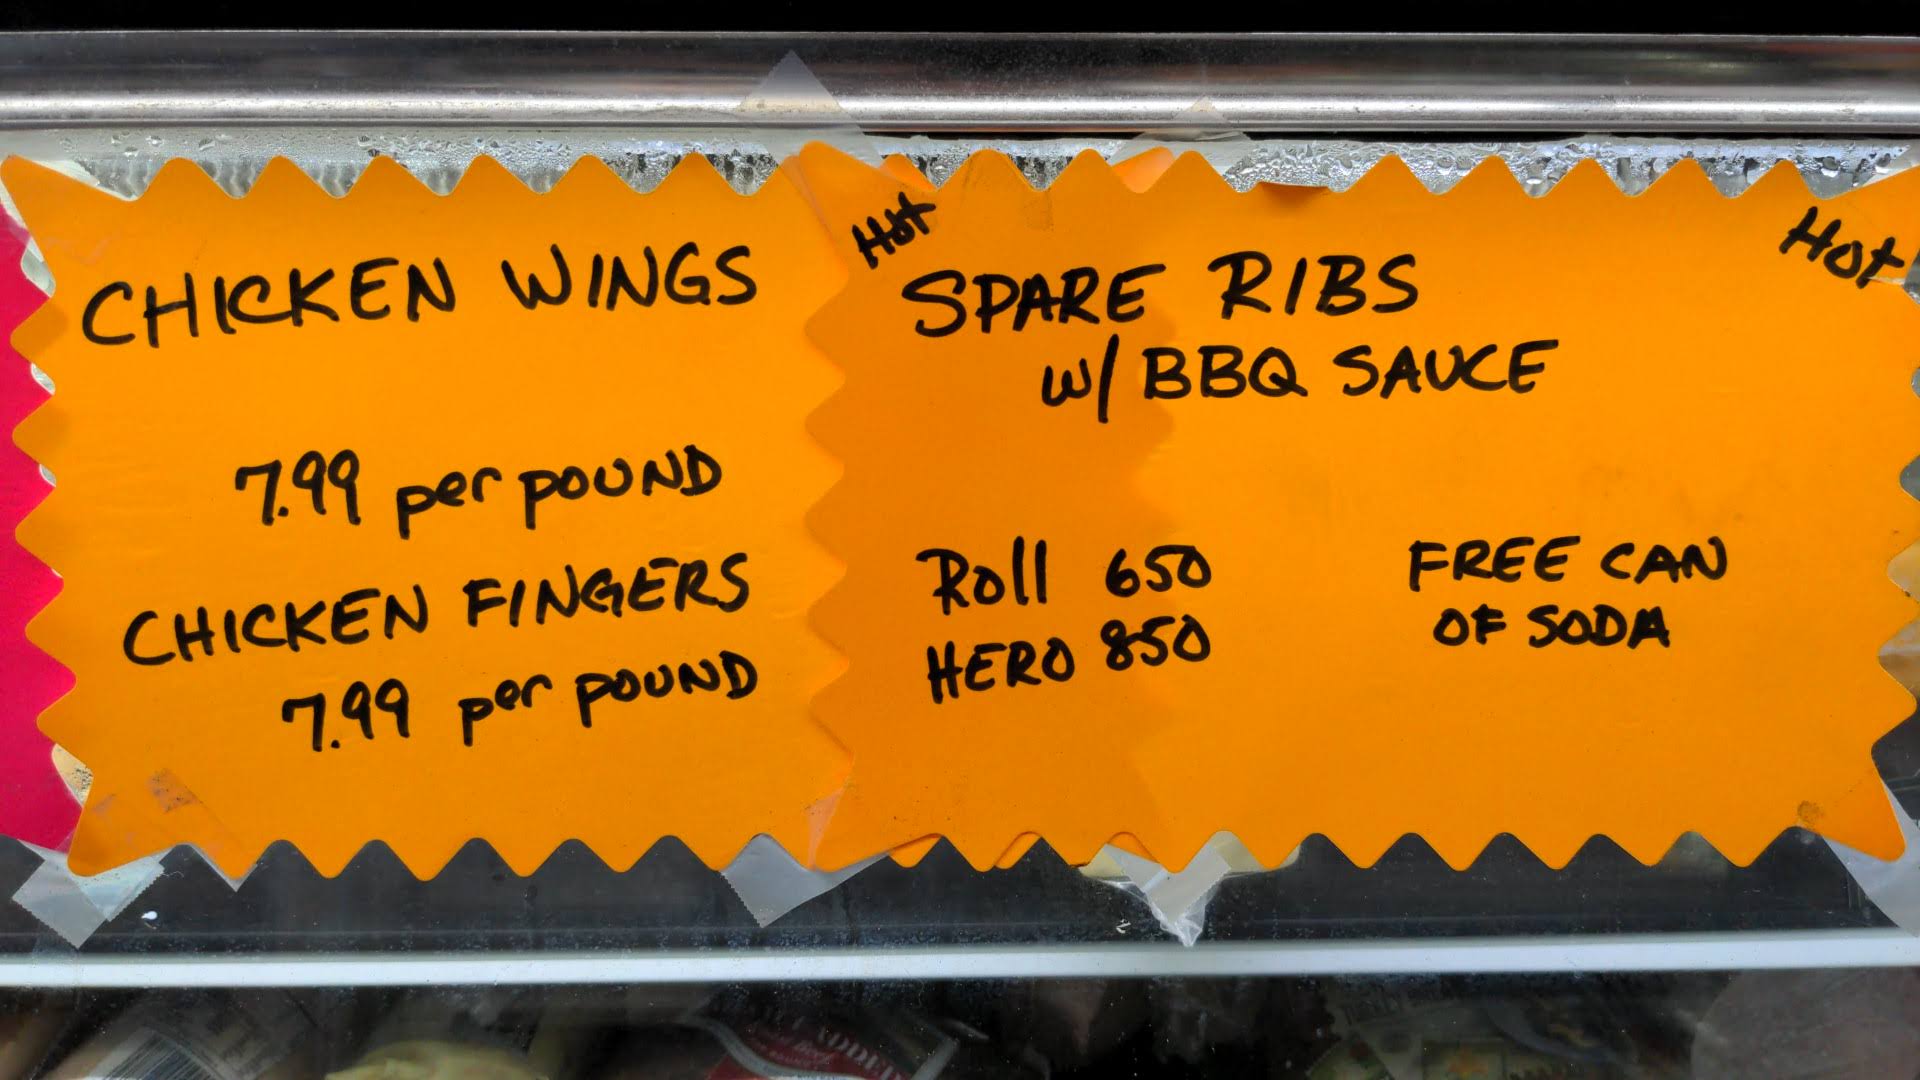 CHICKEN WINGS
7.99 per POUND
CHICKEN FINGERS
7.99 per POUND
Hot
Hot
SPARE RIBS
W/ BBQ SAUCE
Roll 650
HERO 850
FREE CAN
OF SODA